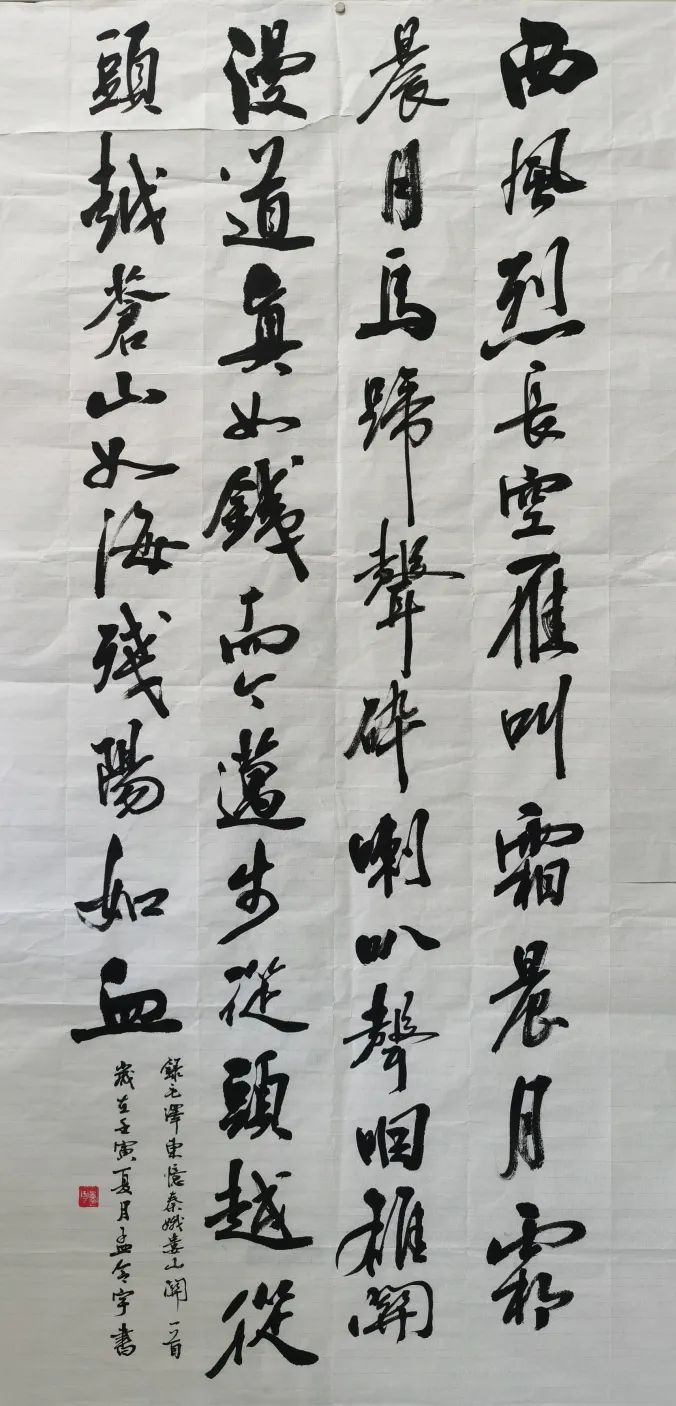 西風烈長空雁叫霜晨月霜
晨月馬蹄聲碎喇叭聲咽雄關
漫道真如鐵而今邁步從頭越從
頭越蒼山如海殘陽如血
錄毛澤東憶秦娥婁山關一首
歲在壬寅夏月孟令宇書